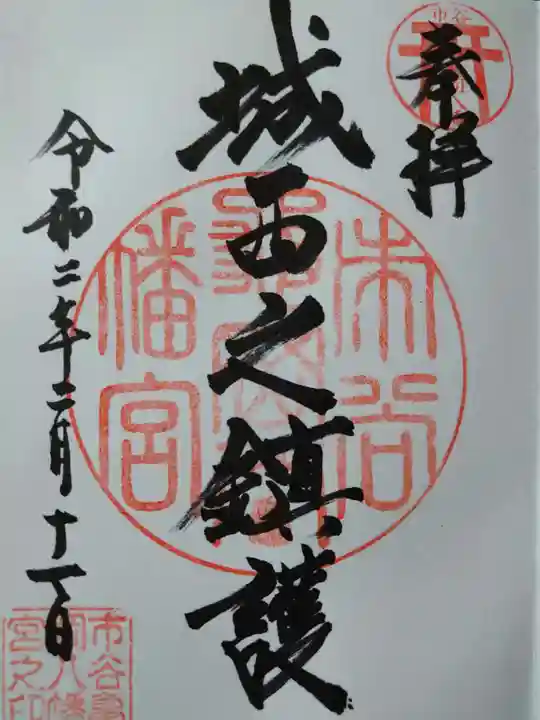 奉拝
城西之鎮護
令和二年二月十一日
市谷亀岡八幡宮
市谷亀岡八幡宮之印